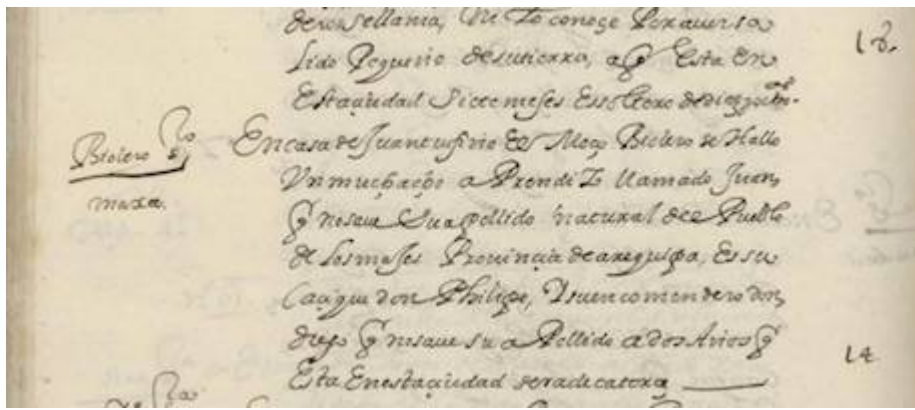 de su sellania, No Lo conoçe Por aver sa
lido Pequeño de su tierra, a q̃ Esta En
Esta çiudad Siete meses Es soltero de diez y och. as.
13.
Biolero
maxa.
En casa de Juan Rufino de Moço Biolero se Hallo
Vn muchacho aPrendiz llamado Juan,
q̃ no save Su apellido natural del Pueblo
de los mases Prouinçia de arequipa, Es su
Caçique don Phelipe, Y su encomendero don
diego q̃ no save su aPellido a dos Años q̃
Esta En esta çiudad sera de catorçe
14